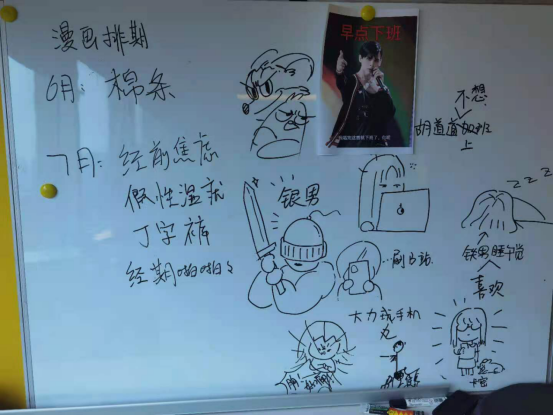 漫画排期
6月: 棉条
7月: 经前焦虑
假性湿疣
丁字裤
经期啪啪
早点下班
不想
胡道道加班
上
银男
铁男睡午觉
喜欢
ZZZ
大力
手机
丸
卡宫